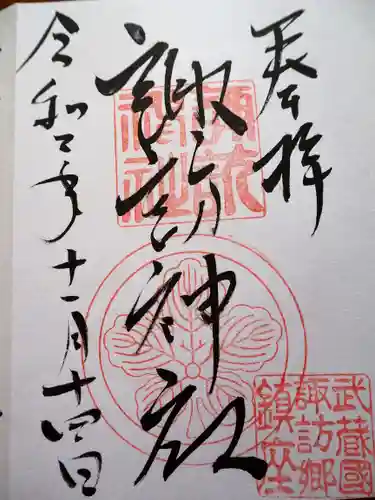 奉拝
諏訪神社
令和二年十一月十四日
諏訪神社
武蔵國
諏訪郷
鎮座